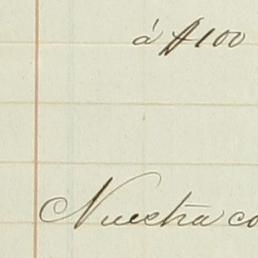 á $100
Nuestra co